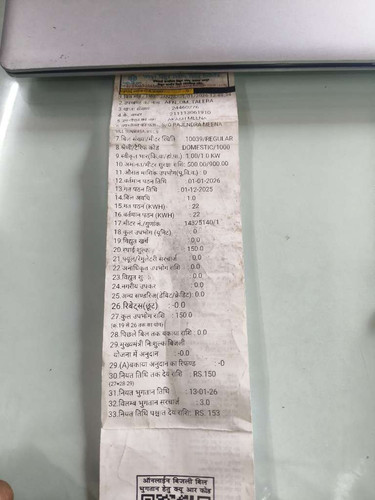 2. उपखंड का नाम: AEN, OM, TALERA
S/O RAJENDRA MEENA
7.बिल संख्या/मीटर स्थिति : 10039/REGULAR
8.श्रेणी/टैरिफ कोड : DOMESTIC/1000
9.स्वीकृत भार(कि.वा/हॉ.पा.) : 1.00/1.0 KW
10.अमानत/मीटर सुरक्षा राशि: 500.00/900.00
11.औसत मासिक उपभोग(यू.नि.): 0
12.वर्तमान पठन तिथि :01-01-2026
13.गत पठन तिथि :01-12-2025
14.बिल अवधि :1.0
15.गत पठन (KWH) : 22
16.वर्तमान पठन (KWH) : 22
17.मीटर नं./गुणांक : 143/5140/1
18.कुल उपभोग (यूनिट) : 0
19.विद्युत खर्च : 0.0
20.स्थाई शुल्क : 150.0
21.फ्यूल/रेगुलेटरी सरचार्ज : 0.0
22.अनाधिकृत उपभोग राशि : 0.0
23.विद्युत शु : 0.0
24.नगरीय उपकर : 0.0
25.अन्य सण्डरिज(डेबिट/क्रेडिट): 0.0
26.रिबेट्स(छूट) : -0.0
27.कुल उपभोग राशि : 150.0
(क्र.19 से 26 तक का योग)
28.पिछले बिल तक बकाया राशि : 0.0
29.मुख्यमंत्री निःशुल्क बिजली
योजना में अनुदान : -0.0
29.(A)बकाया अनुदान का रिफण्ड : -0
30.नियत तिथि तक देय राशि : RS.150
(27+28-29)
31.नियत भुगतान तिथि : 13-01-26
32.विलम्ब भुगतान सरचार्ज : 3.0
33.नियत तिथि पश्चात देय राशि: RS. 153
ऑनलाईन बिजली बिल
भुगतान हेतु क्यू आर कोड